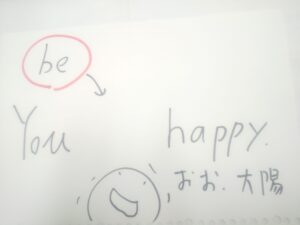 be
You happy.
おお、太陽